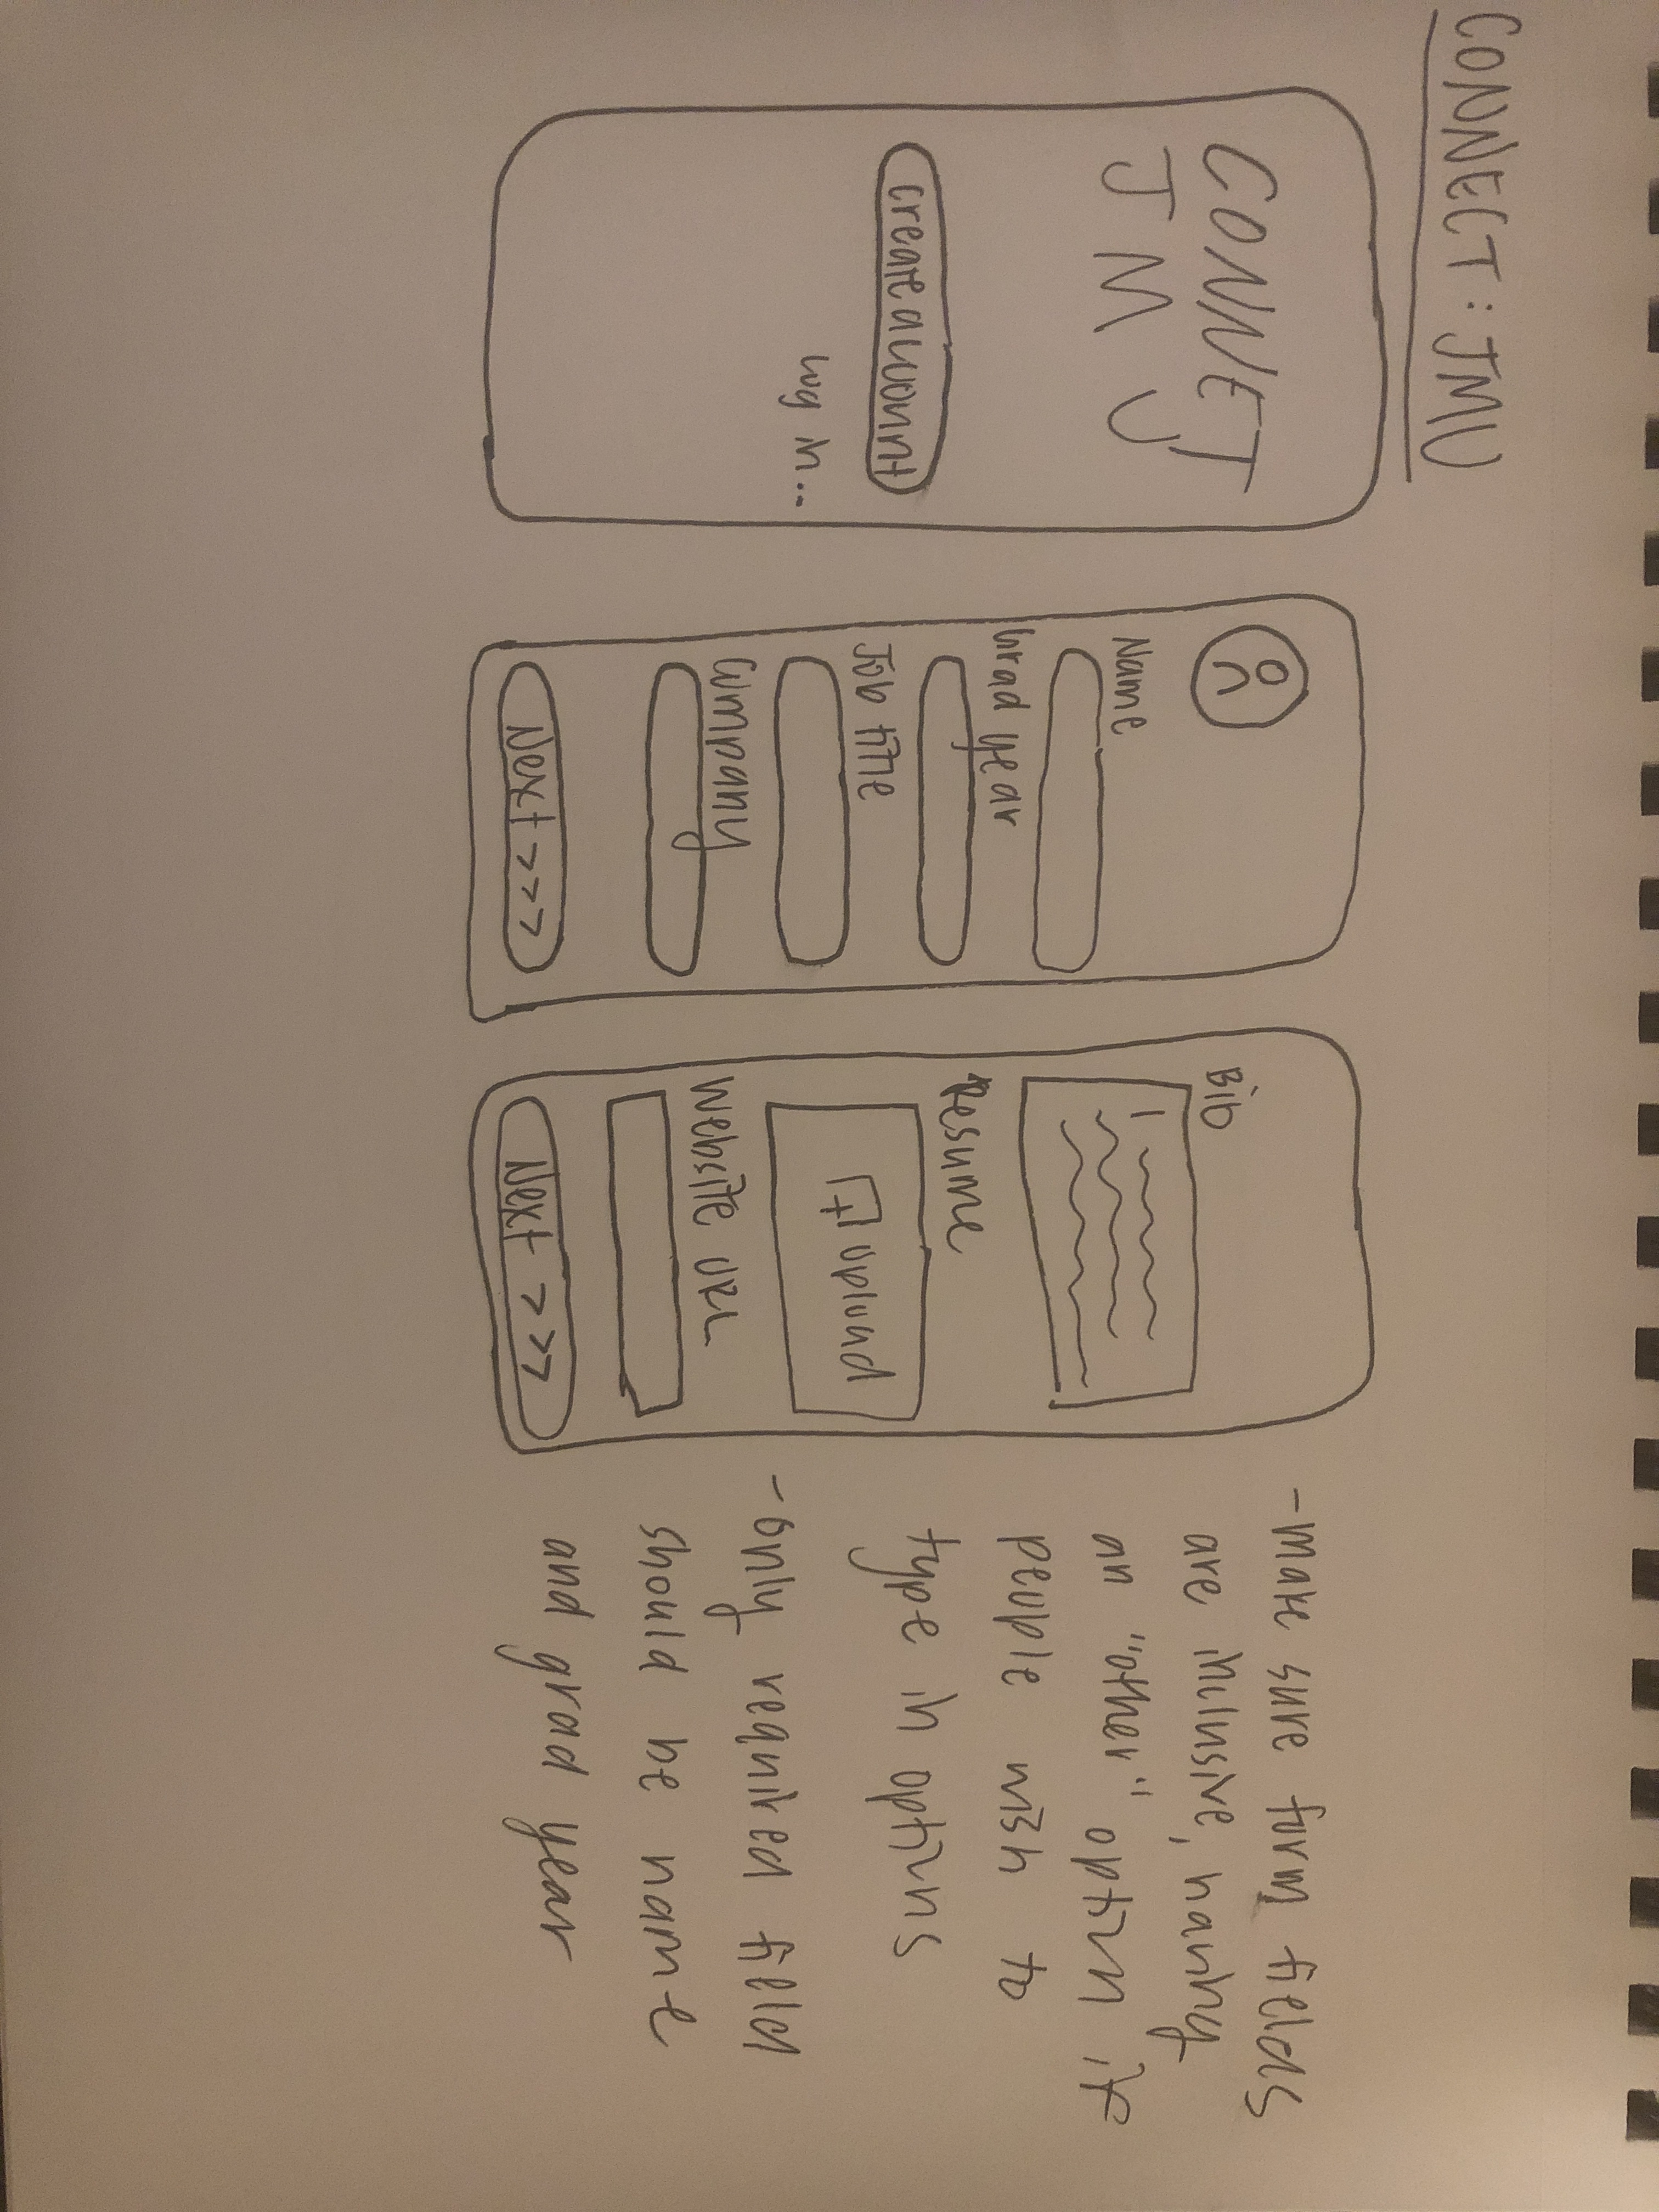 CONNECT: JMU
CONNECT
JMU
create account
log in...
Name
Grad year
Job title
Company
Next >>>
Bio
Resume
+ upload
Website URL
Next >>>
- make sure form fields
are inclusive, having
an "other" option if
people wish to
type in options
- only required field
should be name
and grad year